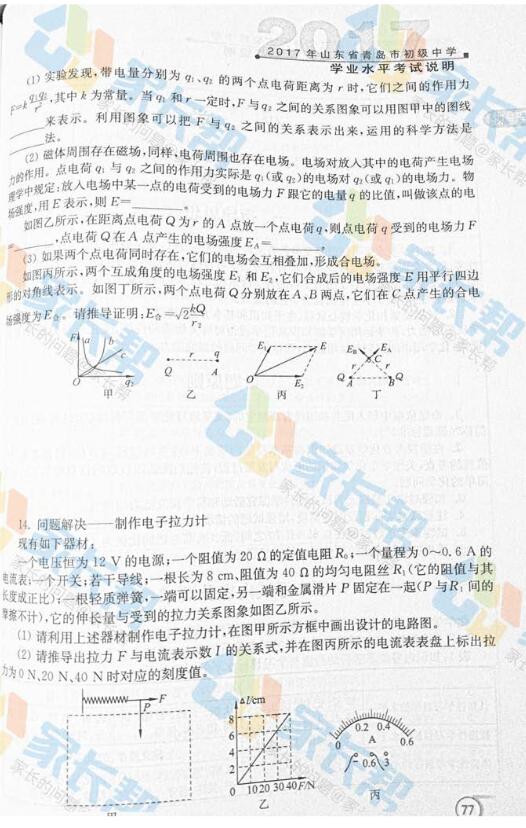 2017
2017年山东省青岛市初级中学
学业水平考试说明
(1) 实验发现,带电量分别为 q₁、q₂ 的两个点电荷距离为 r 时,它们之间的作用力
F=k q₁q₂/r²,其中 k 为常量。当 q₁ 和 r 一定时,F 与 q₂ 之间的关系图象可以用图甲中的图线
______来表示。利用图象可以把 F 与 q₂ 之间的关系表示出来,运用的科学方法是
______法。
(2) 磁体周围存在磁场,同样,电荷周围也存在电场。电场对放入其中的电荷产生电场
力的作用。点电荷 q₁ 与 q₂ 之间的作用力实际是 q₁(或 q₂)的电场对 q₂(或 q₁)的电场力。物
理学中规定:放入电场中某一点的电荷受到的电场力 F 跟它的电量 q 的比值,叫做该点的电
场强度,用 E 表示,则 E=______。
如图乙所示,在距离点电荷 Q 为 r 的 A 点放一个点电荷 q,则点电荷 q 受到的电场力 F
=______,点电荷 Q 在 A 点产生的电场强度 E_A=______。
(3) 如果两个点电荷同时存在,它们的电场会互相叠加,形成合电场。
如图丙所示,两个互成角度的电场强度 E₁ 和 E₂,它们合成后的电场强度 E 用平行四边
形的对角线表示。如图丁所示,两个点电荷 Q 分别放在 A、B 两点,它们在 C 点产生的合电
场强度为 E合。请推导证明:E合=√2 kQ/r₂
F a b c O q₂
甲
Q r q A
乙
E₁ E O E₂
丙
E_B E_A C r r Q A B Q
丁
14. 问题解决——制作电子拉力计
现有如下器材:
一个电压恒为 12 V 的电源;一个阻值为 20 Ω 的定值电阻 R₀;一个量程为 0~0.6 A 的
电流表;一个开关;若干导线;一根长为 8 cm、阻值为 40 Ω 的均匀电阻丝 R₁(它的阻值与其
长度成正比);一根轻质弹簧,一端可以固定,另一端和金属滑片 P 固定在一起(P 与 R₁ 间的
摩擦不计),它的伸长量与受到的拉力关系图象如图乙所示。
(1) 请利用上述器材制作电子拉力计,在图甲所示方框中画出设计的电路图。
(2) 请推导出拉力 F 与电流表示数 I 的关系式,并在图丙所示的电流表表盘上标出拉
力为 0 N、20 N、40 N 时对应的刻度值。
F
P
甲
Δl/cm
8
6
4
2
0 10 20 30 40 F/N
乙
0 0.2 0.4 0.6
A
- 0.6 3
丙
77
家长帮
家长的问题@家长帮